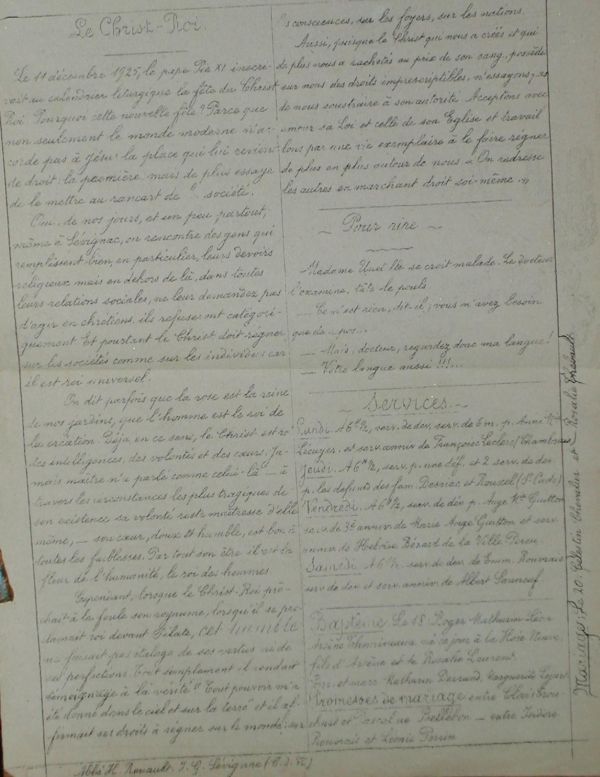 Le Christ-Roi.
Le 11 décembre 1925, le pape Pie XI inscri-
vait au calendrier liturgique la fête du Christ
Roi. Pourquoi cette nouvelle fête ? Parce que
non seulement le monde moderne n'ac-
corde pas à Jésus la place qui lui revient
de droit : la première, mais de plus essaye
de le mettre au rancart de la société.
Oui, de nos jours, et un peu partout,
même à Sévignac, on rencontre des gens qui
remplissent bien, en particulier, leurs devoirs
religieux mais en dehors de là, dans toutes
leurs relations sociales, ne leur demandez pas
d'agir en chrétiens, ils refusent catégori-
quement. Et pourtant le Christ doit régner
sur les sociétés comme sur les individus car
il est roi universel.
On dit parfois que la rose est la reine
de nos jardins, que l'homme est le roi de
la création. Déjà, en ce sens, le Christ est roi
des intelligences, des volontés et des cœurs. Ja-
mais maître n'a parlé comme celui-là — à
travers les circonstances les plus tragiques de
son existence sa volonté reste maîtresse d'elle
même, — son cœur, doux et humble, est bon à
toutes les faiblesses. Par tout son être il est la
fleur de l'humanité, le roi des hommes
Cependant, lorsque le Christ-Roi prê-
chait à la foule son royaume, lorsqu'il se pro-
clamait roi devant Pilate, cet humble
ne faisait pas étalage de ses vertus ni de
ses perfections. Tout simplement il rendait
témoignage à la vérité : "Tout pouvoir m'a
été donné dans le ciel et sur la terre" et il af-
firmait ses droits à régner sur le monde, sur
les consciences, sur les foyers, sur les nations.
Aussi, puisque le Christ qui nous a créés et qui
de plus nous a rachetés au prix de son sang, possède
sur nous des droits imprescriptibles, n'essayons pas
de nous soustraire à son autorité. Acceptons avec
amour sa Loi et celle de son Eglise et travail
lons par une vie exemplaire à le faire régner
de plus en plus autour de nous. « On redresse
les autres en marchant droit soi-même »
~ Pour rire ~
— Madame se croit malade. Le docteur
l'examine, tâte le pouls.
— Ce n'est rien, dit-il, vous n'avez besoin
que de repos...
— Mais, docteur, regardez donc ma langue !
— Votre langue aussi !!!...
~ Services ~
Lundi. A 6h½, serv. de dév. serv. de Em. p. Aimé
Lécuyer, et serv. anniv. de Françoise Leclerc
Jeudi. A 6h½, serv. p. nos déf. et 2 serv. de dév
p. les défunts des fam. Desriac et Rouxel
Vendredi. A 6h½, serv. de dév. p. Ange Guitton
serv. de 3e anniv. de Marie Ange Guitton et serv.
anniv. de Bézard de la Ville
Samedi. A 6h½ serv. de dév. de Emm. Rouvrais
serv. de dév. et serv. anniv. de Albert
Baptême. Le 18. Roger Mathurin
né ce jour à la
fils d'Arsène et de Rosalie Laurent
Par. et marr. Mathurin Durand, Marguerite
Promesses de mariage entre
et — entre Isidore
et Léonie Perrin
Mariage. Le 20. Célestin et Rosalie
Abbé H. Renault, I. G. Sévignac (C. d. N.)